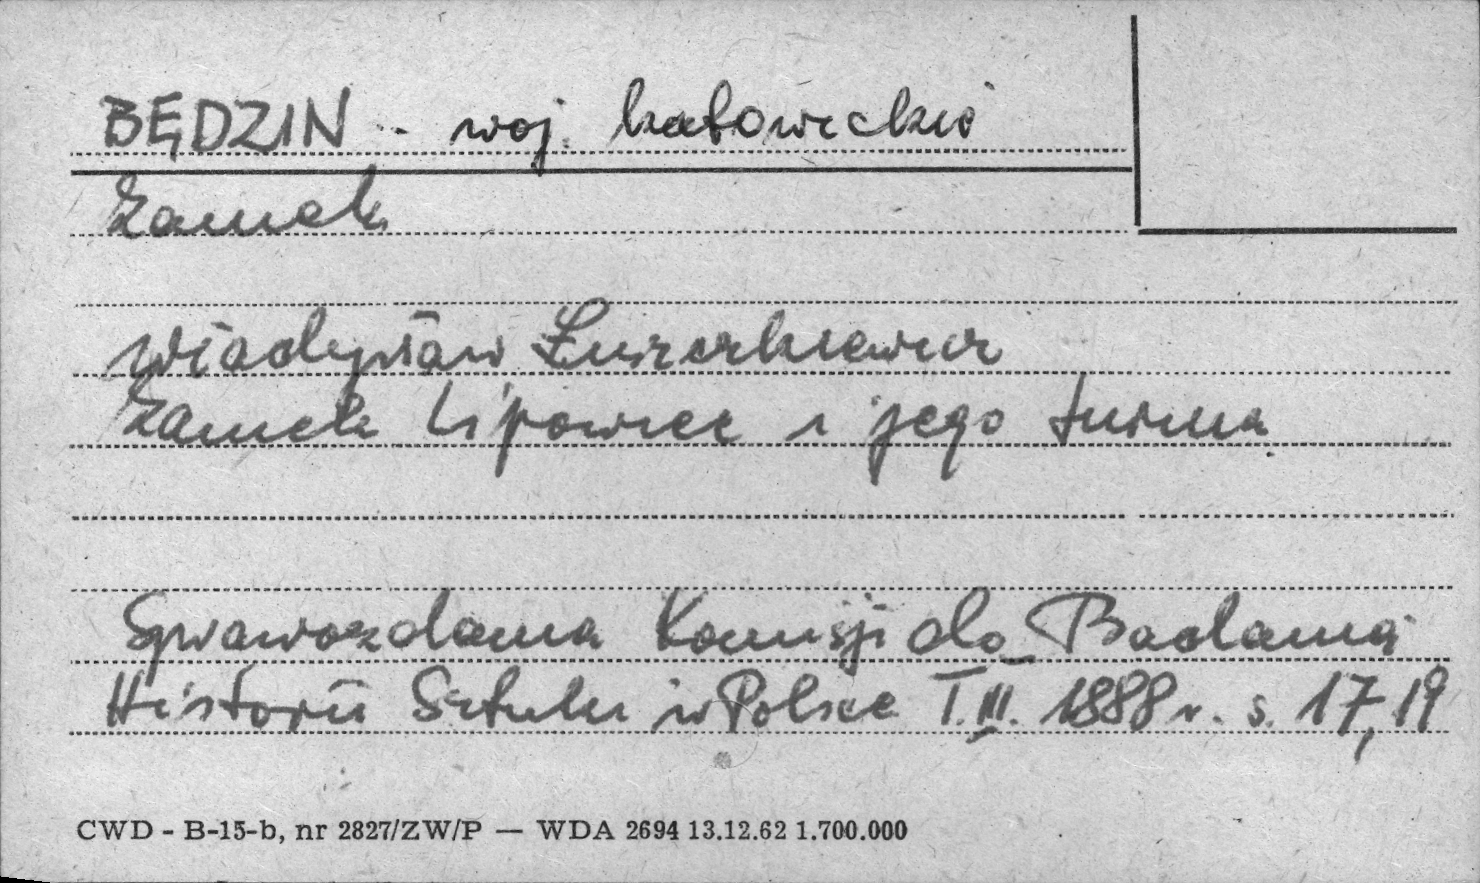 BĘDZIN - woj. katowickie
Zamek
Władysław Łuszczkiewicz
Zamek Lipowiec i jego turma
Sprawozdania Komisji do Badania
Historii Sztuki w Polsce T.III. 1888 r. s. 17, 19
CWD - B-15-b, nr 2827/ZW/P — WDA 2694 13.12.62 1.700.000